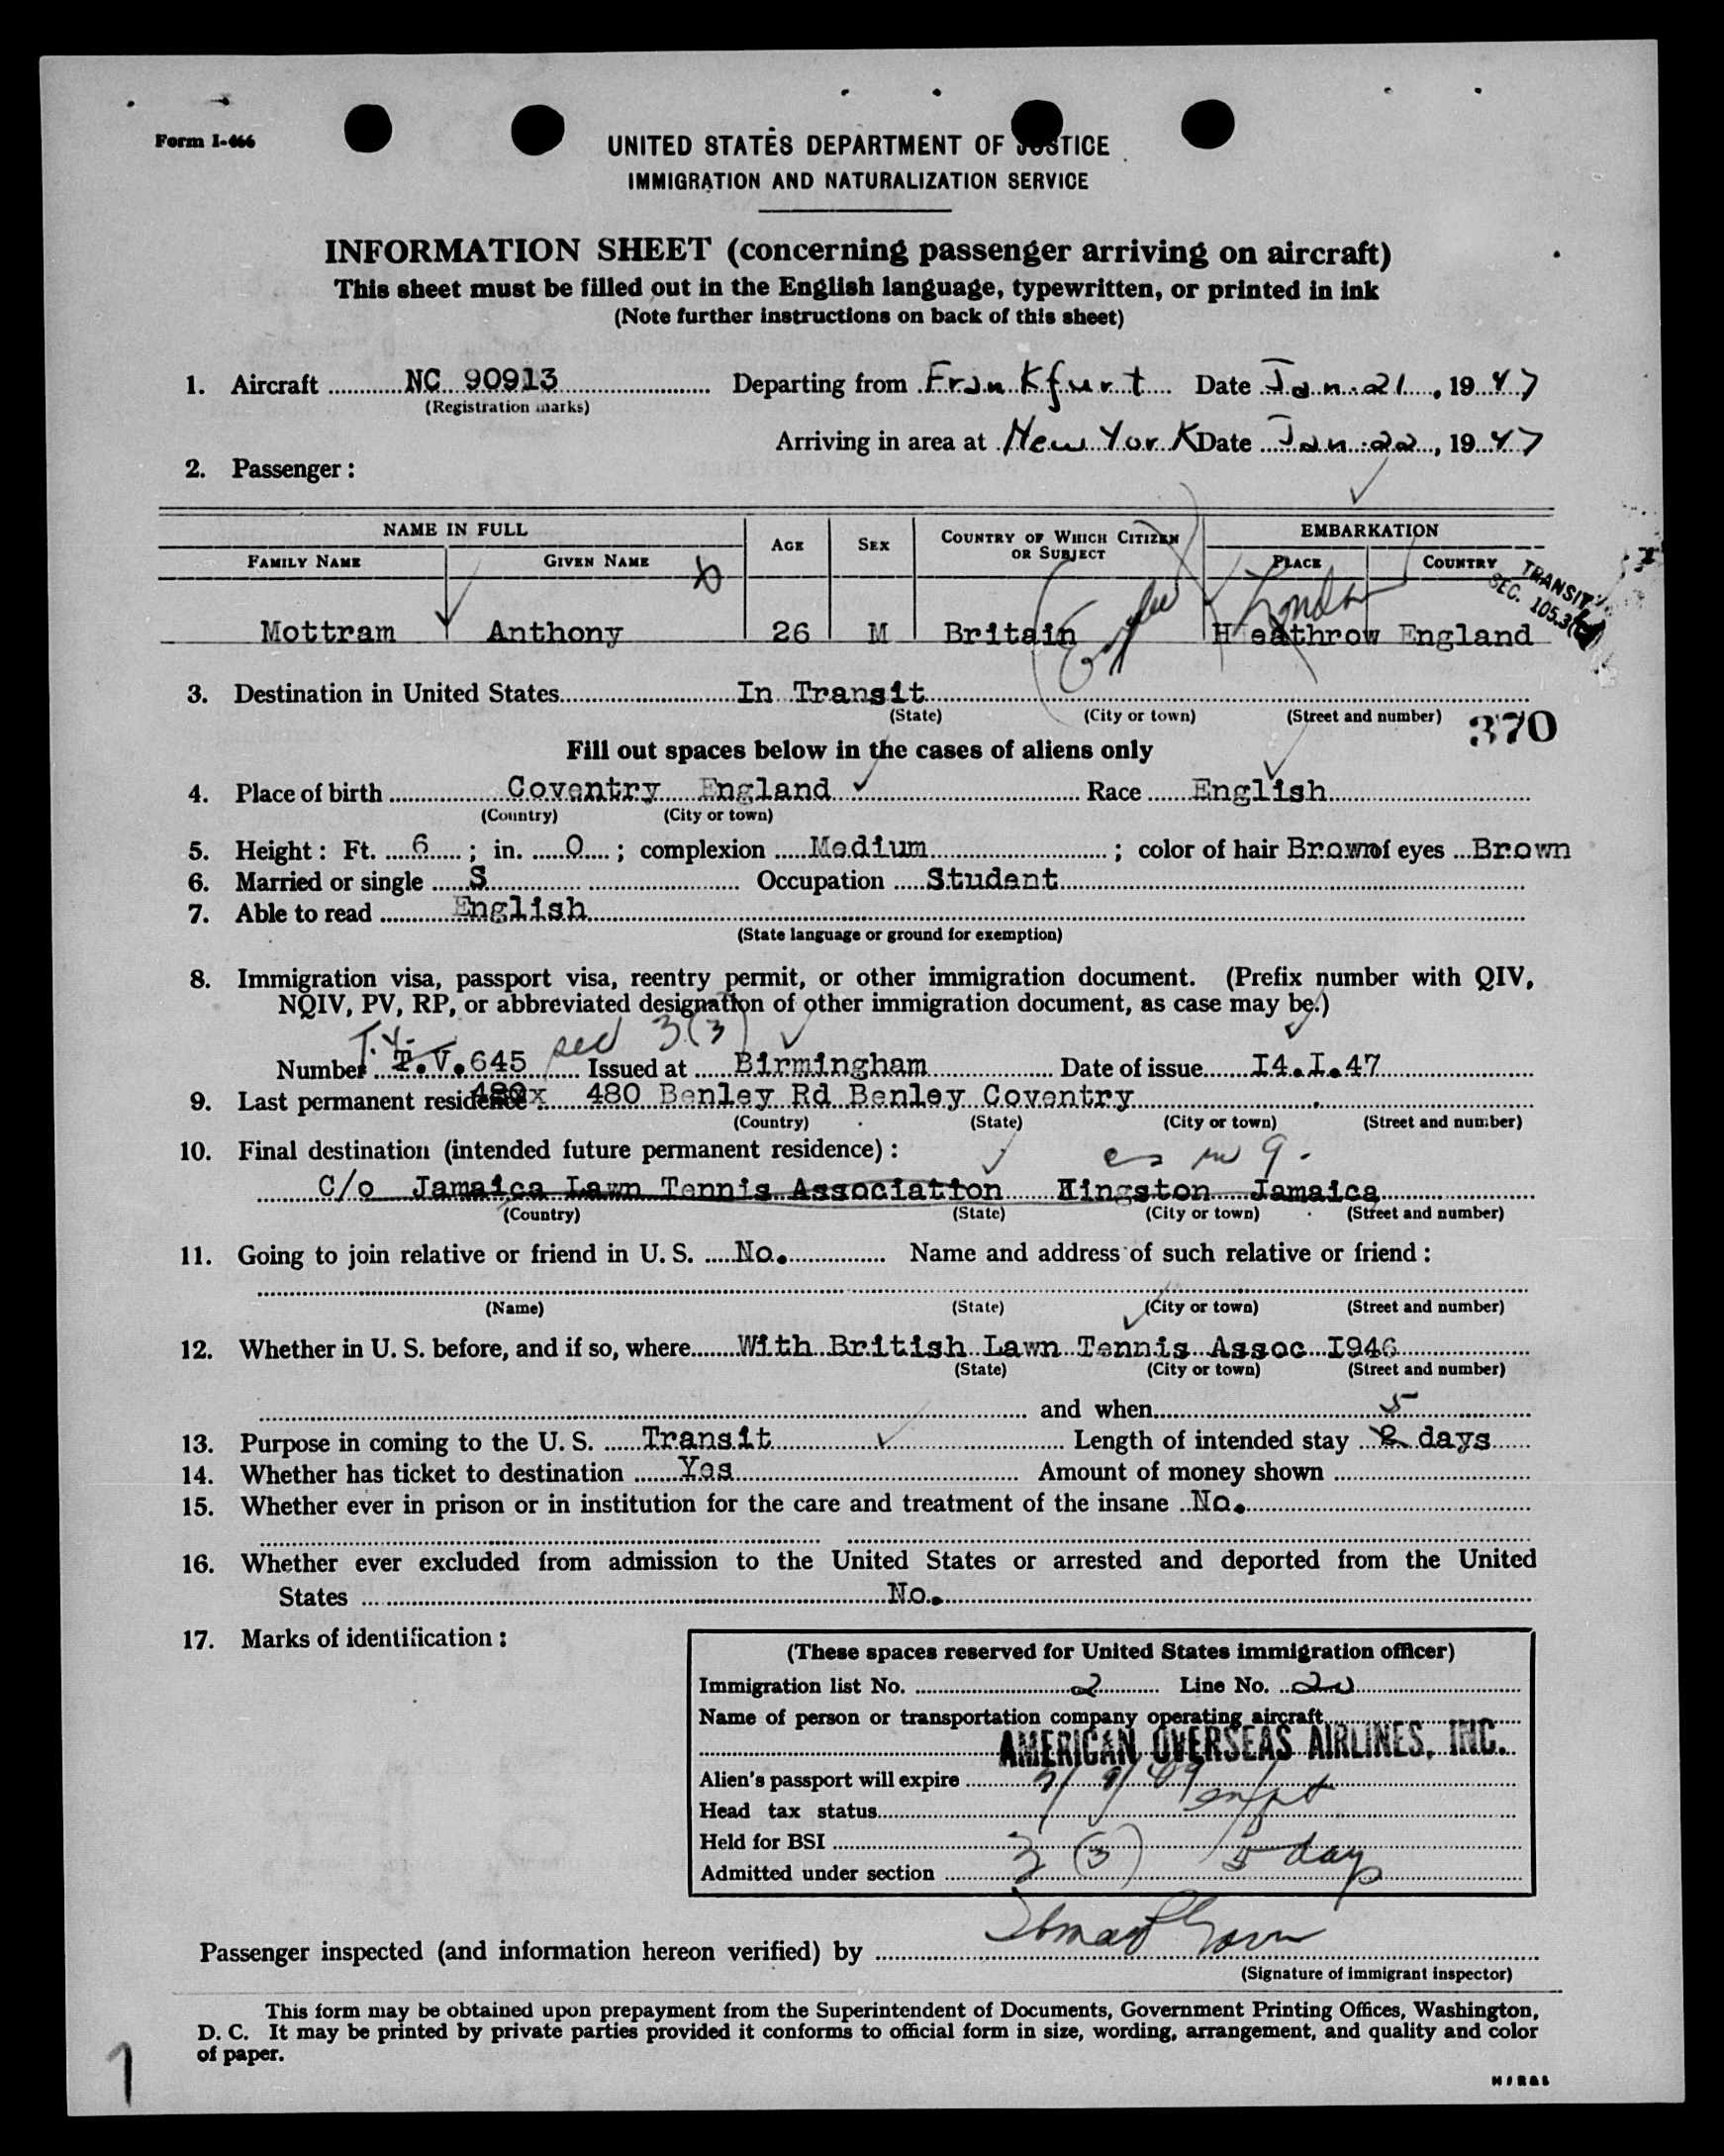 Form I-466
UNITED STATES DEPARTMENT OF JUSTICE
IMMIGRATION AND NATURALIZATION SERVICE
INFORMATION SHEET (concerning passenger arriving on aircraft)
This sheet must be filled out in the English language, typewritten, or printed in ink
(Note further instructions on back of this sheet)
1. Aircraft NC 90913 Departing from Frankfurt Date Jan. 21, 1947
(Registration marks)
Arriving in area at New York Date Jan. 22, 1947
2. Passenger:
NAME IN FULL AGE SEX COUNTRY OF WHICH CITIZEN OR SUBJECT EMBARKATION
FAMILY NAME GIVEN NAME PLACE COUNTRY
TRANSIT
SEC. 105.3
London
Mottram Anthony 26 M Britain Heathrow England
3. Destination in United States In Transit
(State) (City or town) (Street and number)
370
Fill out spaces below in the cases of aliens only
4. Place of birth Coventry England Race English
(Country) (City or town)
5. Height: Ft. 6; in. 0; complexion Medium; color of hair Brown of eyes Brown
6. Married or single S Occupation Student
7. Able to read English
(State language or ground for exemption)
8. Immigration visa, passport visa, reentry permit, or other immigration document. (Prefix number with QIV,
NQIV, PV, RP, or abbreviated designation of other immigration document, as case may be.)
T.V. sec 3(3)
Number T.V.645 Issued at Birmingham Date of issue I4.I.47
9. Last permanent residence 480x 480 Benley Rd Benley Coventry
(Country) (State) (City or town) (Street and number)
10. Final destination (intended future permanent residence):
as in 9.
C/o Jamaica Lawn Tennis Association Kingston Jamaica
(Country) (State) (City or town) (Street and number)
11. Going to join relative or friend in U. S. No. Name and address of such relative or friend:
(Name) (State) (City or town) (Street and number)
12. Whether in U. S. before, and if so, where With British Lawn Tennis Assoc I946
(State) (City or town) (Street and number)
and when
5
13. Purpose in coming to the U. S. Transit Length of intended stay 2 days
14. Whether has ticket to destination Yes Amount of money shown
15. Whether ever in prison or in institution for the care and treatment of the insane No.
16. Whether ever excluded from admission to the United States or arrested and deported from the United
States No.
17. Marks of identification:
(These spaces reserved for United States immigration officer)
Immigration list No. 2 Line No. 20
Name of person or transportation company operating aircraft
AMERICAN OVERSEAS AIRLINES, INC.
Alien's passport will expire 7/9/49
Head tax status
Held for BSI
Admitted under section 3 (3) 5 days
Passenger inspected (and information hereon verified) by
(Signature of immigrant inspector)
This form may be obtained upon prepayment from the Superintendent of Documents, Government Printing Offices, Washington,
D. C. It may be printed by private parties provided it conforms to official form in size, wording, arrangement, and quality and color
of paper.
1